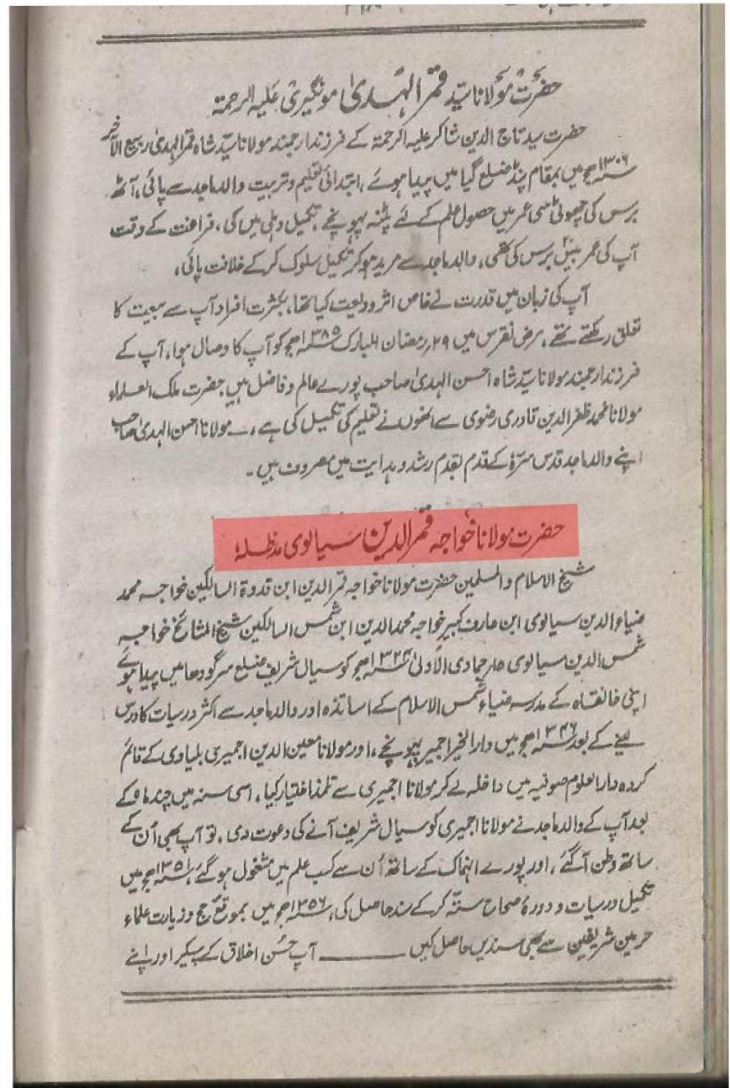 حضرت مولانا سید قمر الہدیٰ مونگیری علیہ الرحمۃ
حضرت سید تاج الدین شاکر علیہ الرحمۃ کے فرزند ارجمند مولانا سید شاہ قمر الہدیٰ ربیع الآخر
۱۳۰۶ھ میں بمقام پنڈ ضلع گیا میں پیدا ہوئے، ابتدائی تعلیم و تربیت والد ماجد سے پائی، آٹھ
برس کی چھوٹی سی عمر میں حصول علم کے لئے پٹنہ پہونچے تکمیل دہلی میں کی، فراغت کے وقت
آپ کی عمر بیس برس کی تھی، والد ماجد سے مرید ہو کر تکمیل سلوک کر کے خلافت پائی،
آپ کی زبان میں قدرت نے خاص اثر ودیعت کیا تھا، بکثرت افراد آپ سے بیعت کا
تعلق رکھتے تھے، مرض نقرس میں ۲۹؍ رمضان المبارک ۱۳۸۵ھ کو آپ کا وصال ہوا، آپ کے
فرزند ارجمند مولانا سید شاہ احسن الہدیٰ صاحب پورے عالم و فاضل ہیں حضرت ملک العلماء
مولانا محمد ظفر الدین قادری رضوی سے انھوں نے تعلیم کی تکمیل کی ہے، ـ مولانا احسن الہدیٰ صاحب
اپنے والد ماجد قدس سرہٗ کے قدم بقدم رشد و ہدایت میں مصروف ہیں۔
حضرت مولانا خواجہ قمر الدین سیالوی مدظلہٗ
شیخ الاسلام والمسلمین حضرت مولانا خواجہ قمر الدین ابن قدوۃ السالکین خواجہ محمد
ضیاء الدین سیالوی ابن عارف کبیر خواجہ محمد الدین ابن شمس السالکین شیخ المشائخ خواجہ
شمس الدین سیالوی جمادی الاولیٰ ۱۳۲۴ھ کو سیال شریف ضلع سرگودھا میں پیدا ہوئے
اپنی خانقاہ کے مدرسہ ضیاء شمس الاسلام کے اساتذہ اور والد ماجد سے اکثر درسیات کا درس
لینے کے بعد ۱۳۴۶ھ میں دار الخیر اجمیر پہونچے، اور مولانا معین الدین اجمیری بلیاوی کے قائم
کردہ دار العلوم صوفیہ میں داخلہ لے کر مولانا اجمیری سے تلمذ اختیار کیا، اسی سنہ میں چند ماہ کے
بعد آپ کے والد ماجد نے مولانا اجمیری کو سیال شریف آنے کی دعوت دی، تو آپ بھی اُن کے
ساتھ وطن آ گئے، اور پورے انہماک کے ساتھ اُن سے کسب علم میں مشغول ہو گئے، ۱۳۵۱ھ میں
تکمیل درسیات و دورۂ صحاح ستہ کر کے سند حاصل کی، ۱۳۵۶ھ میں بموقع حج و زیارت علماء
حرمین شریفین سے بھی سندیں حاصل کیں ــــــــ آپ حُسن اخلاق کے پیکر اور اپنے